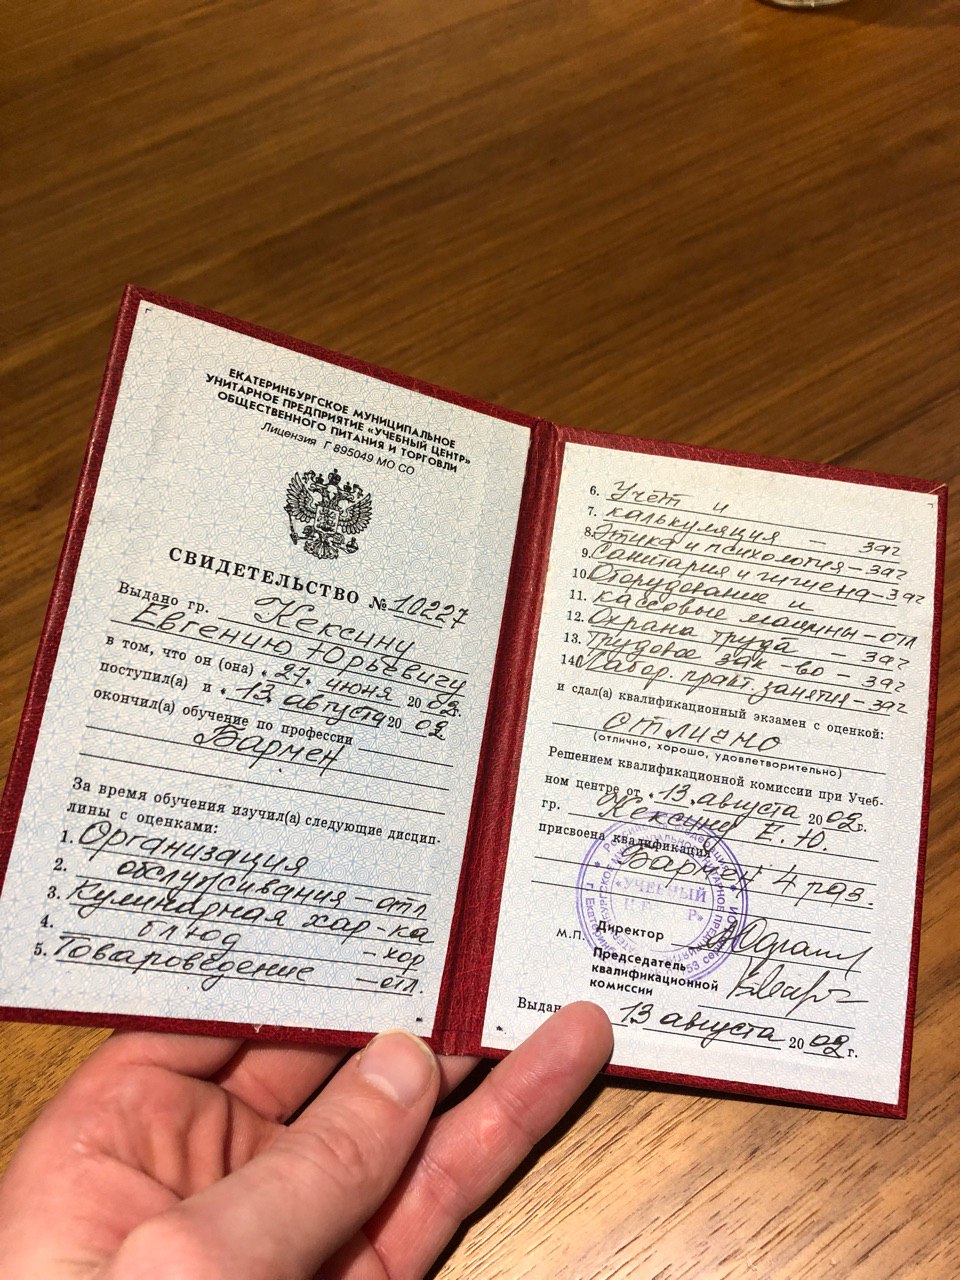 ЕКАТЕРИНБУРГСКОЕ МУНИЦИПАЛЬНОЕ
УНИТАРНОЕ ПРЕДПРИЯТИЕ «УЧЕБНЫЙ ЦЕНТР»
ОБЩЕСТВЕННОГО ПИТАНИЯ И ТОРГОВЛИ
Лицензия Г 895049 МО СО
СВИДЕТЕЛЬСТВО № 10227
Выдано гр. Кексину
Евгению Юрьевичу
в том, что он (она) « 27. июня 2002г.
поступил(а) и « 13. августа 2002
окончил(а) обучение по профессии
Бармен
За время обучения изучил(а) следующие дисцип-
лины с оценками:
1. Организация
2. обслуживания – отл
3. Кулинарная хар-ка
4. блюд – хор
5. Товароведение – отл.
6. Учёт и
7. калькуляция – зач
8. Этика и психология – зач
9. Санитария и гигиена – зач
10. Оборудование и
11. кассовые машины – отл
12. Охрана труда – зач
13. Трудовое зак-во – зач
14. Лабор. практ. занятия – зач
и сдал(а) квалификационный экзамен с оценкой:
отлично
(отлично, хорошо, удовлетворительно)
Решением квалификационной комиссии при Учеб-
ном центре от « 13. августа 2002г.
гр. Кексину Е. Ю.
присвоена квалификация
Бармен 4 раз.
«УЧЕБНЫЙ
Директор
М.П.
Председатель
квалификационной
комиссии
Выдан 13 августа 2002 г.